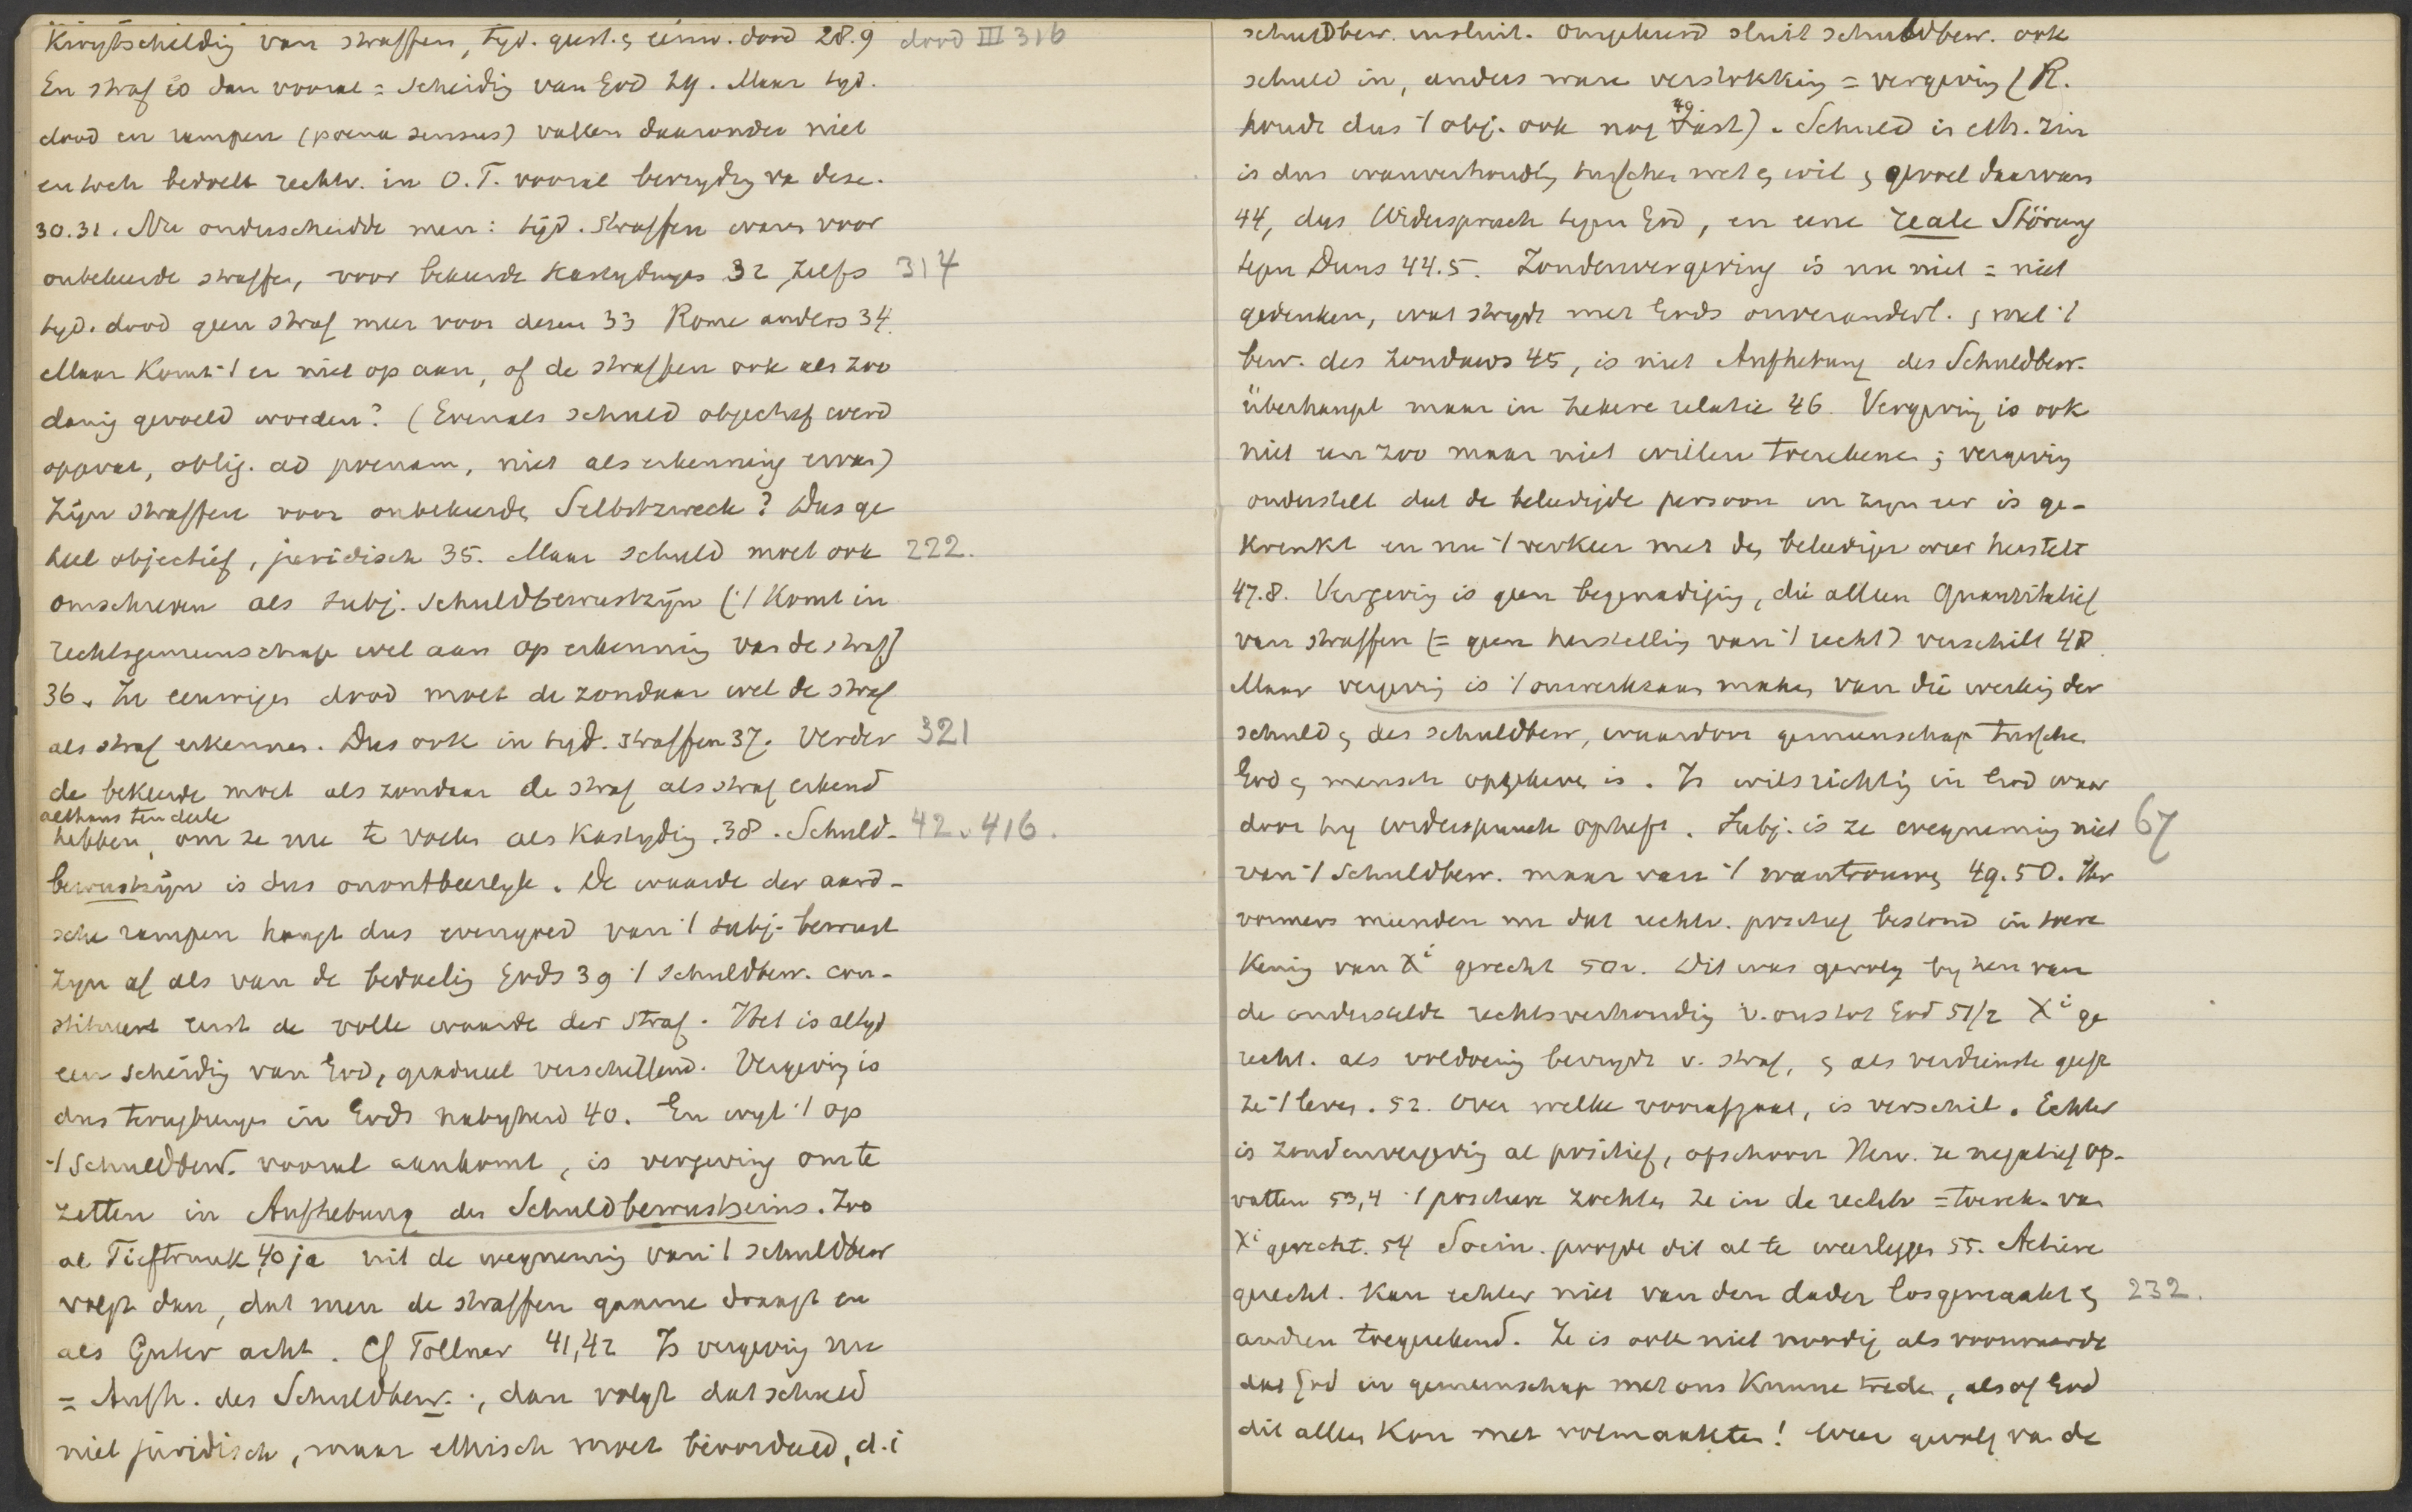 Kwytschelding van straffen, tyd. geest. & eeuw. dood 28.9 dood III 316
En straf is dan vooral = scheiding van God 29. Maar tyd.
dood en rampen (poena sensus) vallen daaronder niet
en toch bedoelt rechtv. in O.T. vooral bevryding va deze.
30.31. Nu onderscheidde men: tijd. straffen waren voor
onbekeerde straffen, voor bekeerde kastydingen 32, zelfs 314
tyd. dood geen straf meer voor dezen 33 Rome anders 34.
Maar komt 't er niet op aan, of de straffen ook als zoo
danig gevoeld worden? (Evenals schuld objectief werd
opgevat, oblig. ad poenam, niet als erkenning ervan)
Zijn straffen voor onbekeerde Selbstzweck? Dus ge
heel objectief, juridisch 35. Maar schuld moet ook 222.
omschreven als subj. schuldbewustzijn ('t komt in
rechtsgemeenschap wel aan op erkenning van de straf)
36. In eeuwigen dood moet de zondaar wel de straf
als straf erkennen. Dus ook in tyd. straffen 37. Verder 321
de bekeerde moet als zondaar de straf als straf erkend
althans ten deele
hebben, om ze nu te voelen als kastyding .38. Schuld- 42. 416.
bewustzijn is dus onontbeerlyk. De waarde der aard-
sche rampen hangt dus evengoed van 't subj. bewust
zyn af als van de bedoeling Gods 39 't schuldbew. con-
stitueert eerst de volle waarde der straf. Het is altyd
een scheidig van God, gradueel verschillend. Vergeving is
dus terugbrengen in Gods nabyheid 40. En wyl 't op
't schuldbew. vooral aankomt, is vergeving om te
zetten in Aufhebung des Schuldbewustseins. Zoo
al Tieftrunk 40 ja uit de wegneming van 't schuldbew
volgt dan, dat men de straffen gaarne draagt en
als Güter acht. Cf Töllner 41,42 Is vergeving nu
= Aufh. des Schuldbew., dan volgt dat schuld
niet juridisch, maar ethisch moet beoordeeld, d.i
schuldbew. insluit. Omgekeerd sluit schuldbew. ook
schuld in, anders ware verstokking = vergeving (R.
houdt dus 't obj. ook nog vast). Schuld in eth. zin
49
is dus wanverhoudig tusschen wet & wil & gevoel daarvan
44, dus Widerspruch tegen God, en eene reale Störung
tegen Duns 44.5. Zondenvergeving is nu niet = niet
gedenken, wat strydt met Gods onveranderl. & met 't
bew. des zondaars 45, is niet Aufhebung des Schuldbew.
überhaupt maar in zekere relatie 46. Vergeving is ook
niet een zoo maar niet willen toerekenen; vergeving
onderstelt dat de beleedigde persoon in zyn eer is ge-
krenkt en nu 't verkeer met den beleediger weer herstelt
47.8. Vergeving is geen begenadiging, die alleen Quantitatief
van straffen (= geen herstelling van 't recht) verschilt 48.
Maar vergeving is 't onwerkzaam maken van die werking der
schuld & des schuldbew, waardoor gemeenschap tusschen
God & mensch opgeheven is. Is wilsrichtig in God waar
door hy widerspruch opheft. Subj. is ze wegneming niet 67
van 't schuldbew. maar van 't wantrouwen 49.50. Her
vormers meenden nu dat rechtv. positief bestond in toere
kenig van Xi gerecht 50v. Dit was gevolg by hen van
de onderstelde rechtsverhoudig v. ons tot God 51/2 Xi ge
recht. als voldoenig bevrydt v. straf, & als verdienste geeft
ze 't leven. 52. Over welke vooropgaat, is verschil. Echter
is zondenvergevig al positief, ofschoon Herv. ze negatief op-
vatten 53,4 't positieve zochten ze in de rechtv = toerek. van
Xi gerecht. 54 Socin. poogde dit al te weerleggen 55. Actieve
gerecht. kan echter niet van den dader losgemaakt & 232.
andren toegerekend. Ze is ook niet noodig als voorwaarde
dat God in gemeenschap met ons kunne treden, alsof God
dit alleen kon met volmaakten! Weer gevolg van de